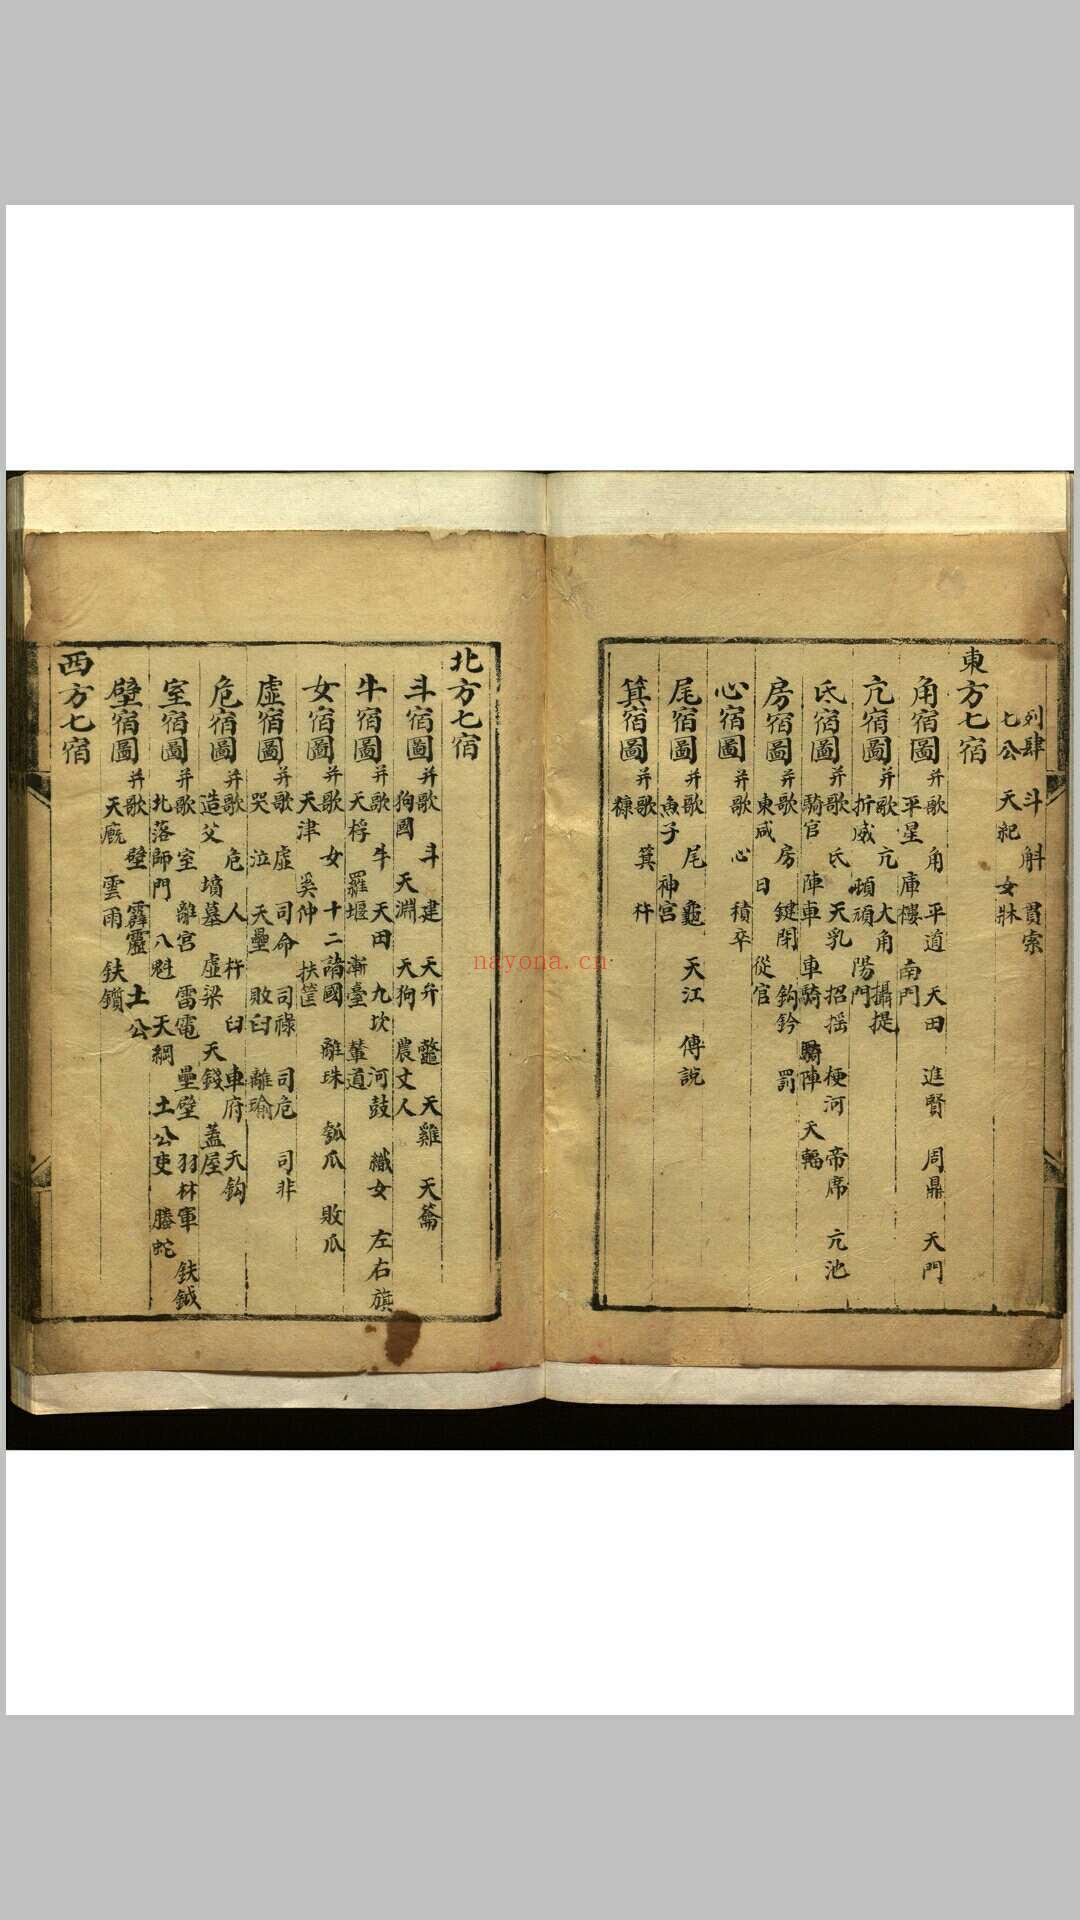 列肆 斗斛 貫索
七公 天紀 女牀
東方七宿
角宿圖 并歌 角 平道 天田 進賢 周鼎 天門
平星 庫樓 南門
亢宿圖 并歌 亢 大角 攝提
折威 頓頑 陽門
氐宿圖 并歌 氐 天乳 招搖 梗河 帝席 亢池
騎官 陣車 車騎 騎陣 天輻
房宿圖 并歌 房 鍵閉 鈎鈐 罰
東咸 日 從官
心宿圖 并歌 心 積卒
尾宿圖 并歌 尾 龜 天江 傅說
魚子 神宮
箕宿圖 并歌 箕 杵
糠
北方七宿
斗宿圖 并歌 斗 建 天弁 鼈 天雞 天籥
狗國 天淵 天狗 農丈人
牛宿圖 并歌 牛 天田 九坎 河鼓 織女 左右旗
天桴 羅堰 漸臺 輦道
女宿圖 并歌 女 十二諸國 離珠 瓠瓜 敗瓜
天津 奚仲 扶筐
虛宿圖 并歌 虛 司命 司祿 司危 司非
哭 泣 天壘 敗臼 離瑜
危宿圖 并歌 危 人 杵 臼 車府 天鈎
造父 墳墓 虛梁 天錢 蓋屋
室宿圖 并歌 室 離宮 雷電 壘壁 羽林軍 鈇鉞
北落師門 八魁 天綱 土公吏 螣蛇
壁宿圖 并歌 壁 霹靂 土公
天廐 雲雨 鈇鑕
西方七宿
nayona.cn